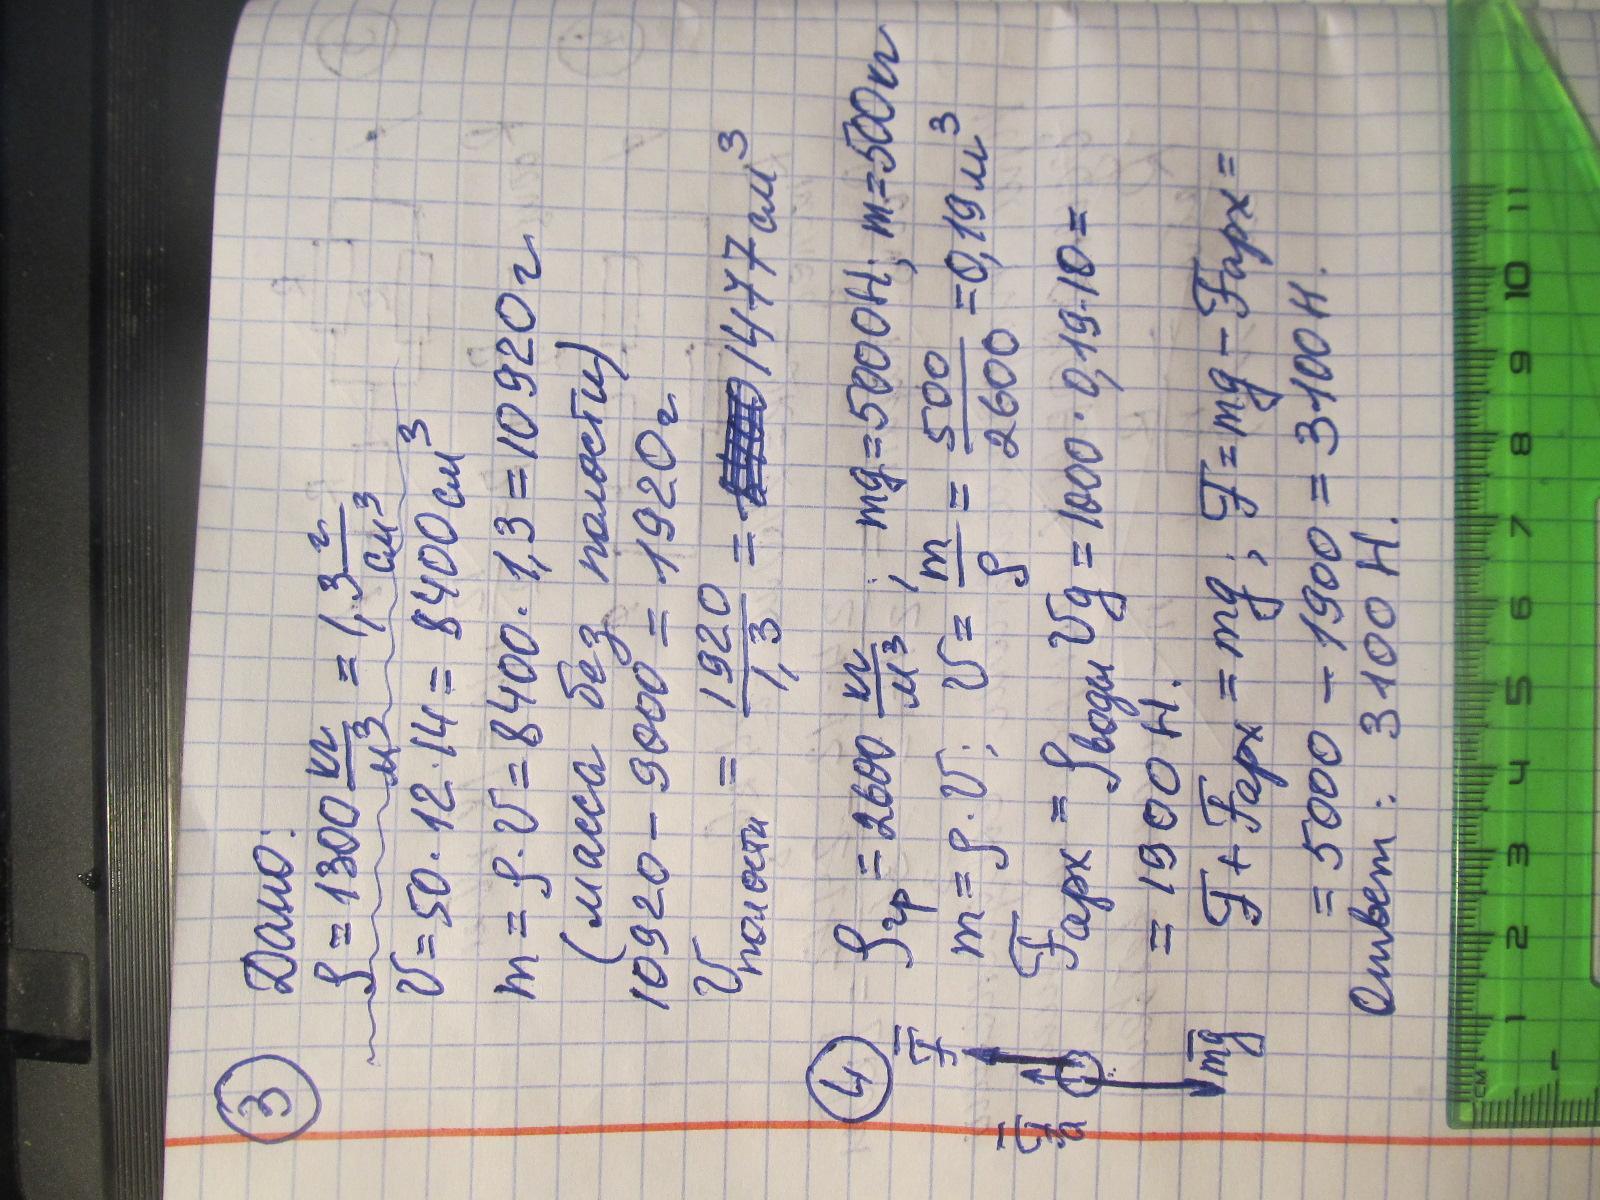 ③ Дано:
ρ = 1300 кг/м³ = 1,3 г/см³
V = 50 · 12 · 14 = 8400 см³
m = ρ · V = 8400 · 1,3 = 10920 г
(масса без полости)
10920 - 9000 = 1920 г
V полости = 1920/1,3 = 1477 см³
④ ρгр = 2600 кг/м³; mg = 5000 Н; m = 500 кг
m = ρ · V; V = m/ρ = 500/2600 = 0,19 м³
Fарх = ρводы Vg = 1000 · 0,19 · 10 =
= 1900 Н.
F + Fарх = mg; F = mg - Fарх =
= 5000 - 1900 = 3100 Н.
Ответ: 3100 Н.
F
Fa
mg
см 1 2 3 4 5 6 7 8 9 10 11